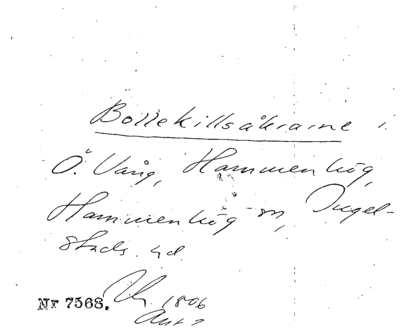 Bollekillsåkrarne i
Ö. Vång, Hammenhög,
Hammenhög sn, Ingel-
stads hd
Nr 7568. 1806